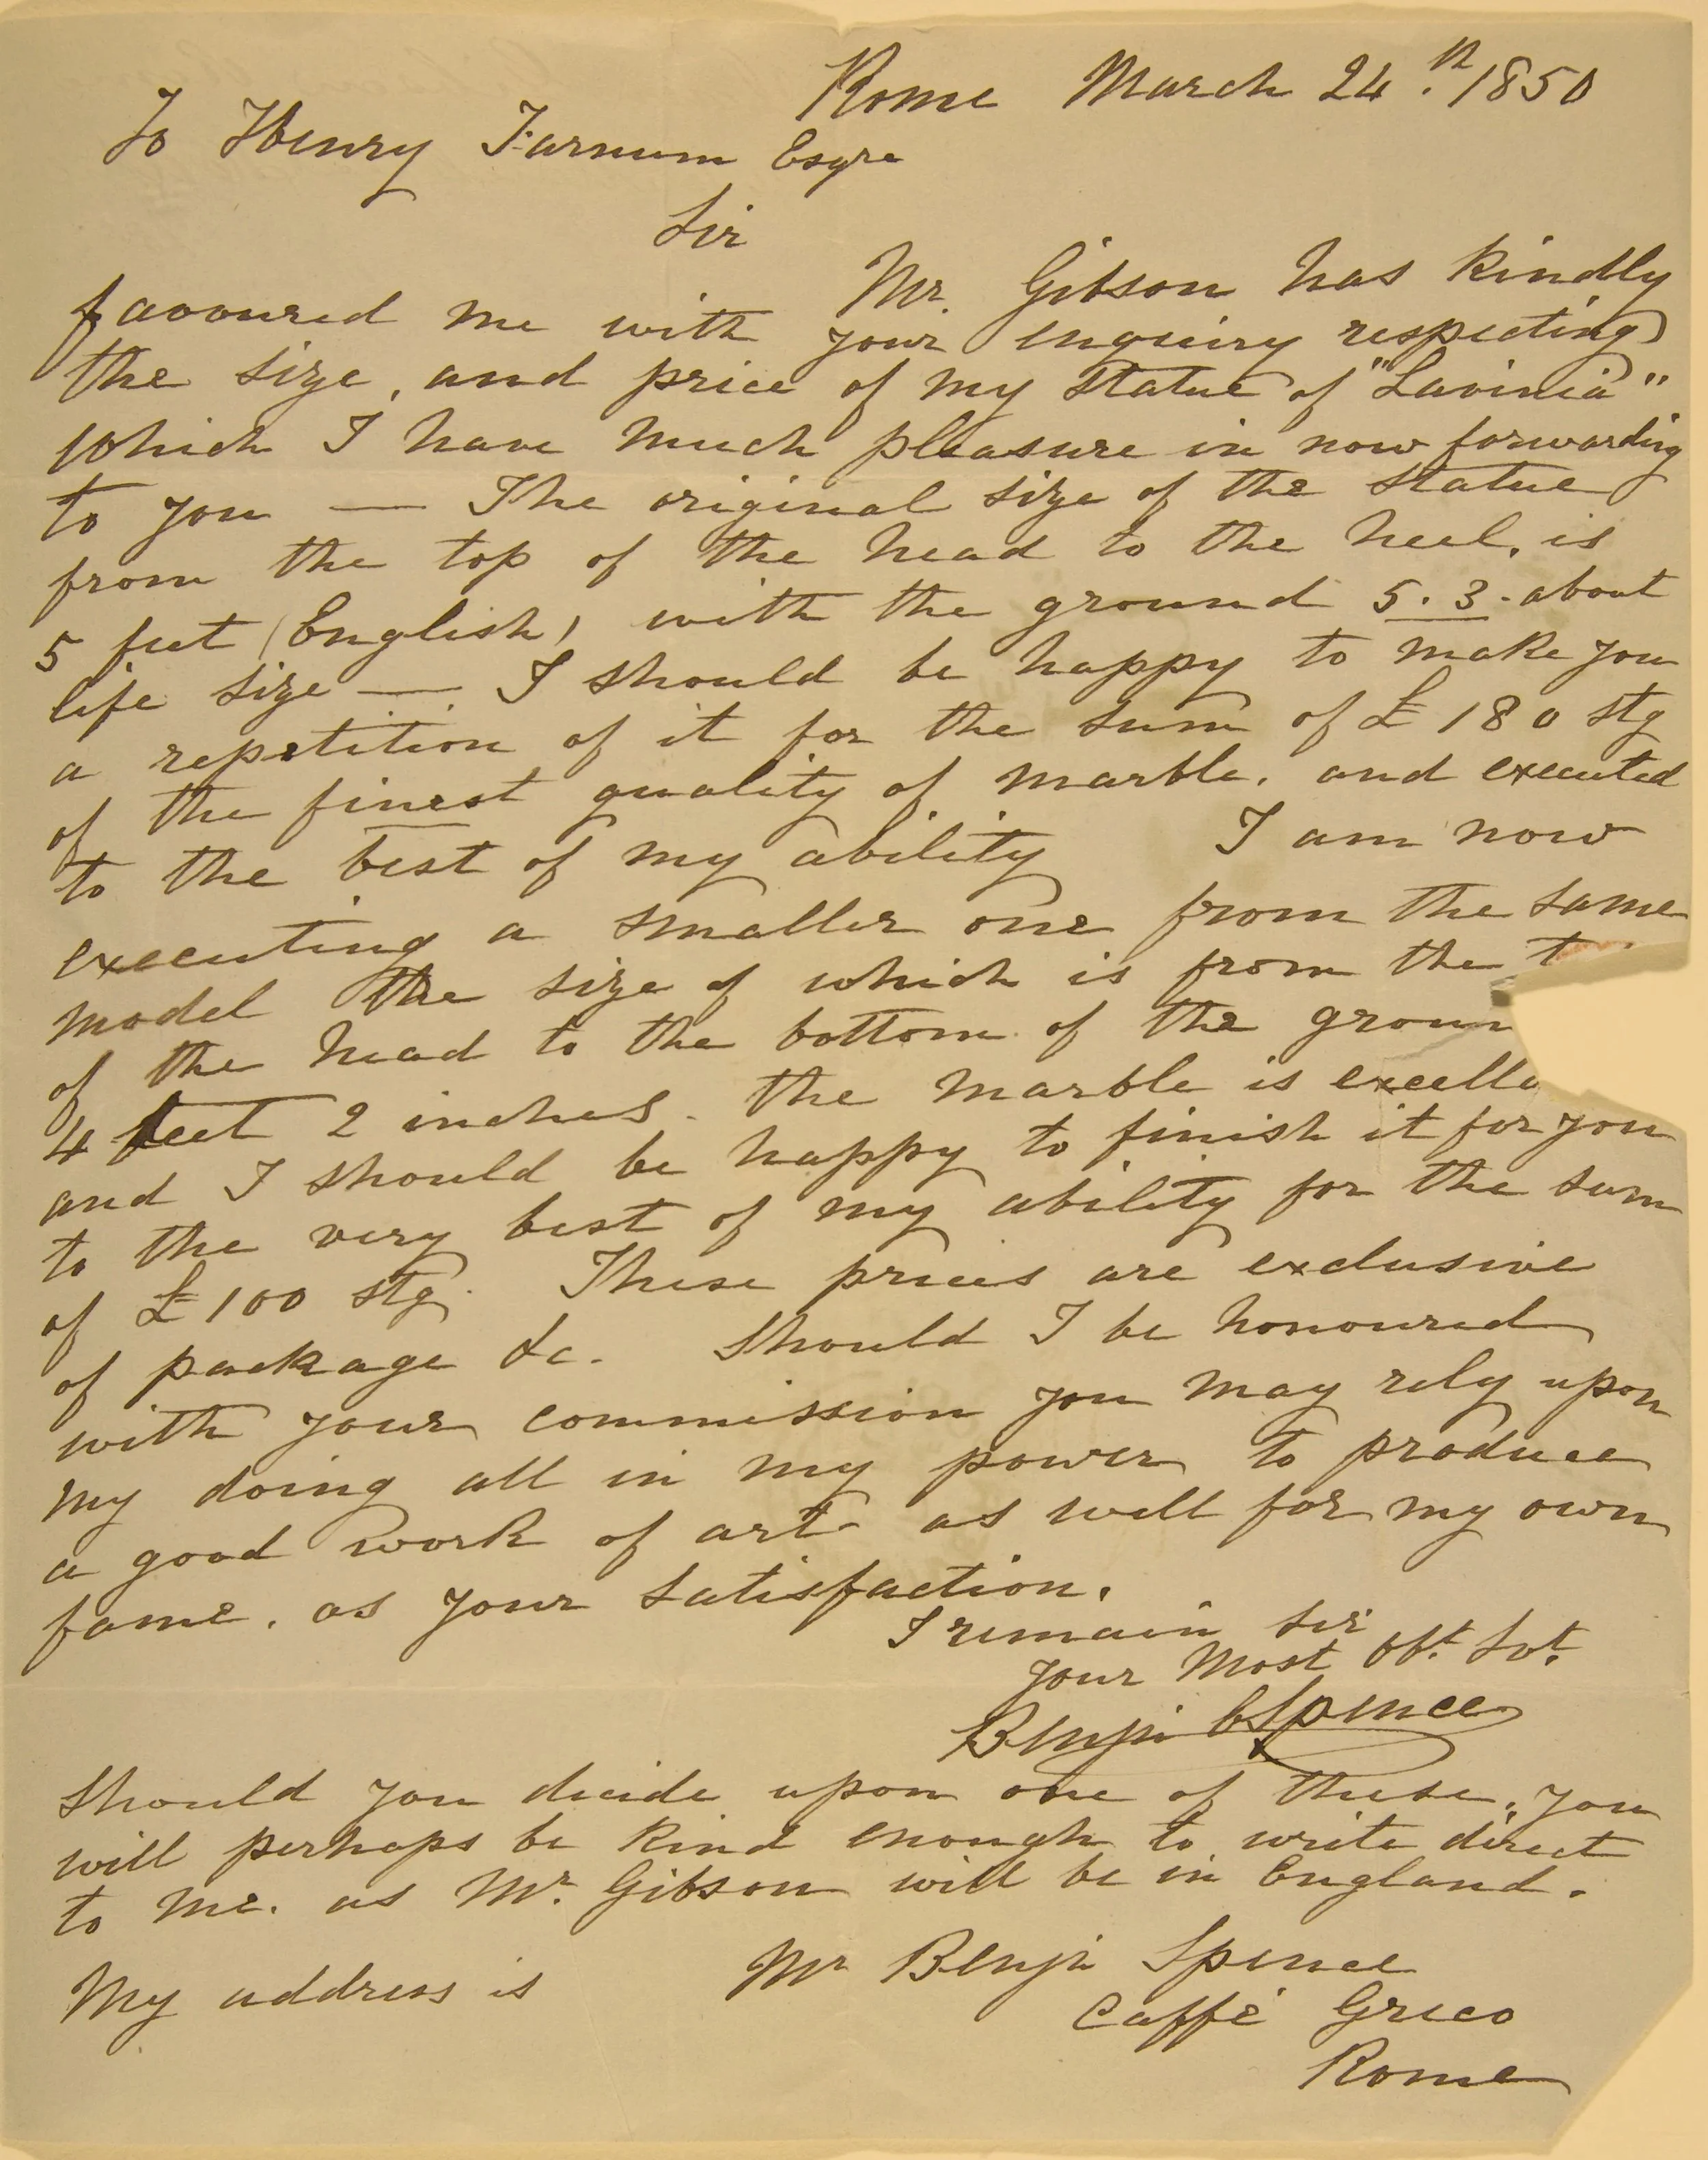 Rome March 24.th 1850
To Henry Farnum Esqre
Sir
Mr. Gibson has kindly
favoured me with your enquiry respecting
the size, and price of my statue of "Lavinia"
which I have much pleasure in now forwarding
to you — The original size of the statue
from the top of the head to the heel, is
5 feet (English) with the ground 5.3. about
life size —. I should be happy to make you
a repetition of it for the sum of £180 stg
of the finest quality of marble. and executed
to the best of my ability I am now
executing a smaller one from the same
model the size of which is from the t
of the head to the bottom of the groun
4 feet 2 inches. the marble is excelle
and I should be happy to finish it for you
to the very best of my ability for the sum
of £100 stg. These prices are exclusive
of package &c. Should I be honoured
with your commission you may rely upon
my doing all in my power to produce
a good work of art as well for my own
fame. as your satisfaction.
I remain Sir
your Most Obt. Svt.
Benjn Spence
Should you decide upon one of these, you
will perhaps be kind enough to write direct
to me. as Mr. Gibson will be in England.
My address is Mr Benjn Spence
Caffè Greco
Rome